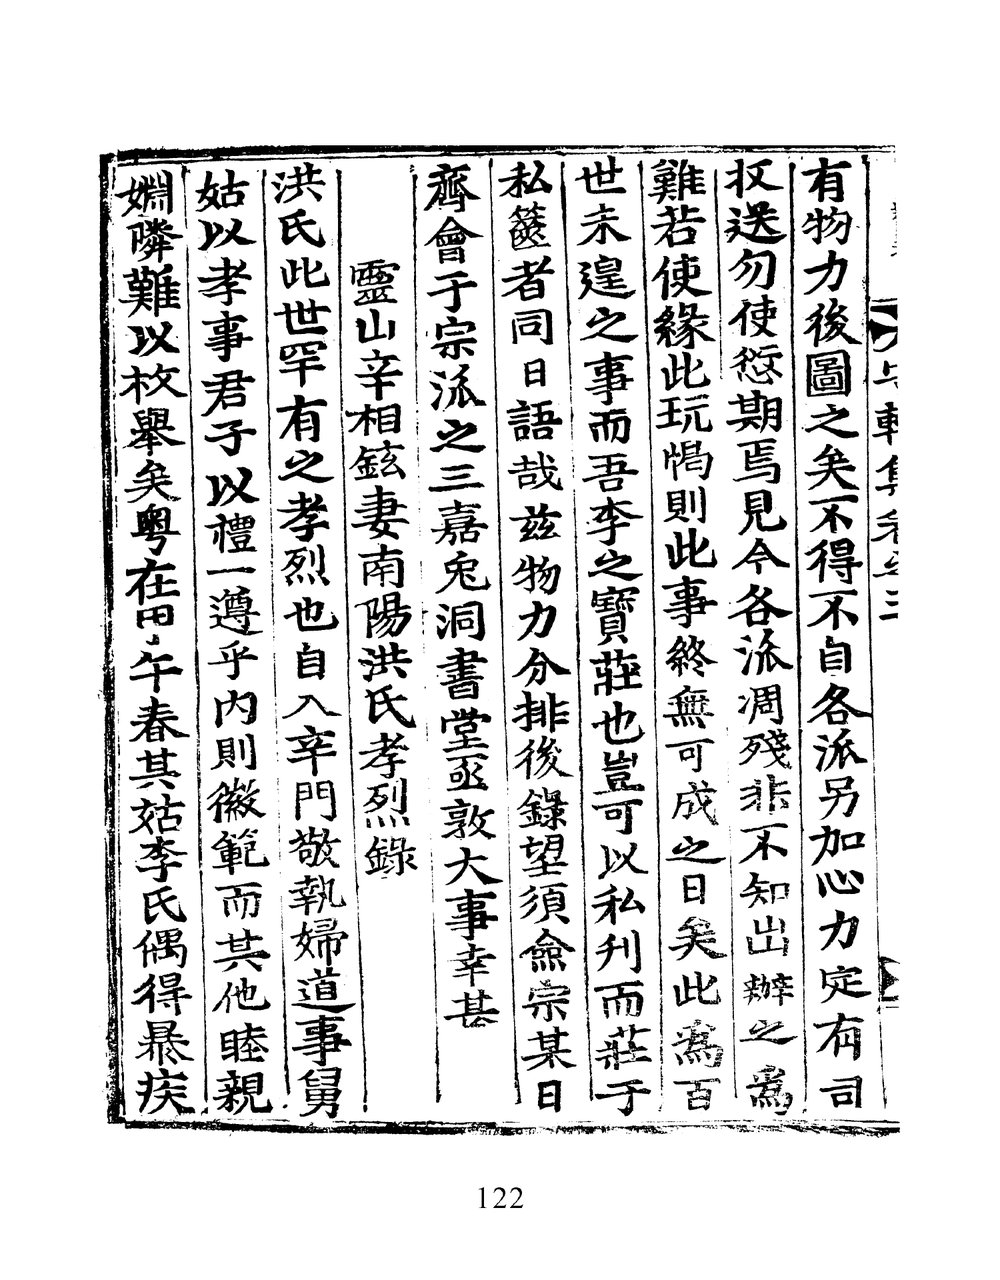 有物力後圖之矣不得不自各派另加心力定有司
收送勿使愆期焉見今各派凋殘非不知出辦之為
難若使緣此玩愒則此事終無可成之日矣此為百
世未遑之事而吾李之寶莊也豈可以私刋而莊于
私篋者同日語哉茲物力分排後錄望須僉宗某日
齊會于宗派之三嘉兎洞書堂亟敦大事幸甚
靈山辛相鉉妻南陽洪氏孝烈錄
洪氏此世罕有之孝烈也自入辛門敬執婦道事舅
姑以孝事君子以禮一遵乎內則徽範而其他睦親
婣隣難以枚擧矣粤在甲午春其姑李氏偶得暴疾
122